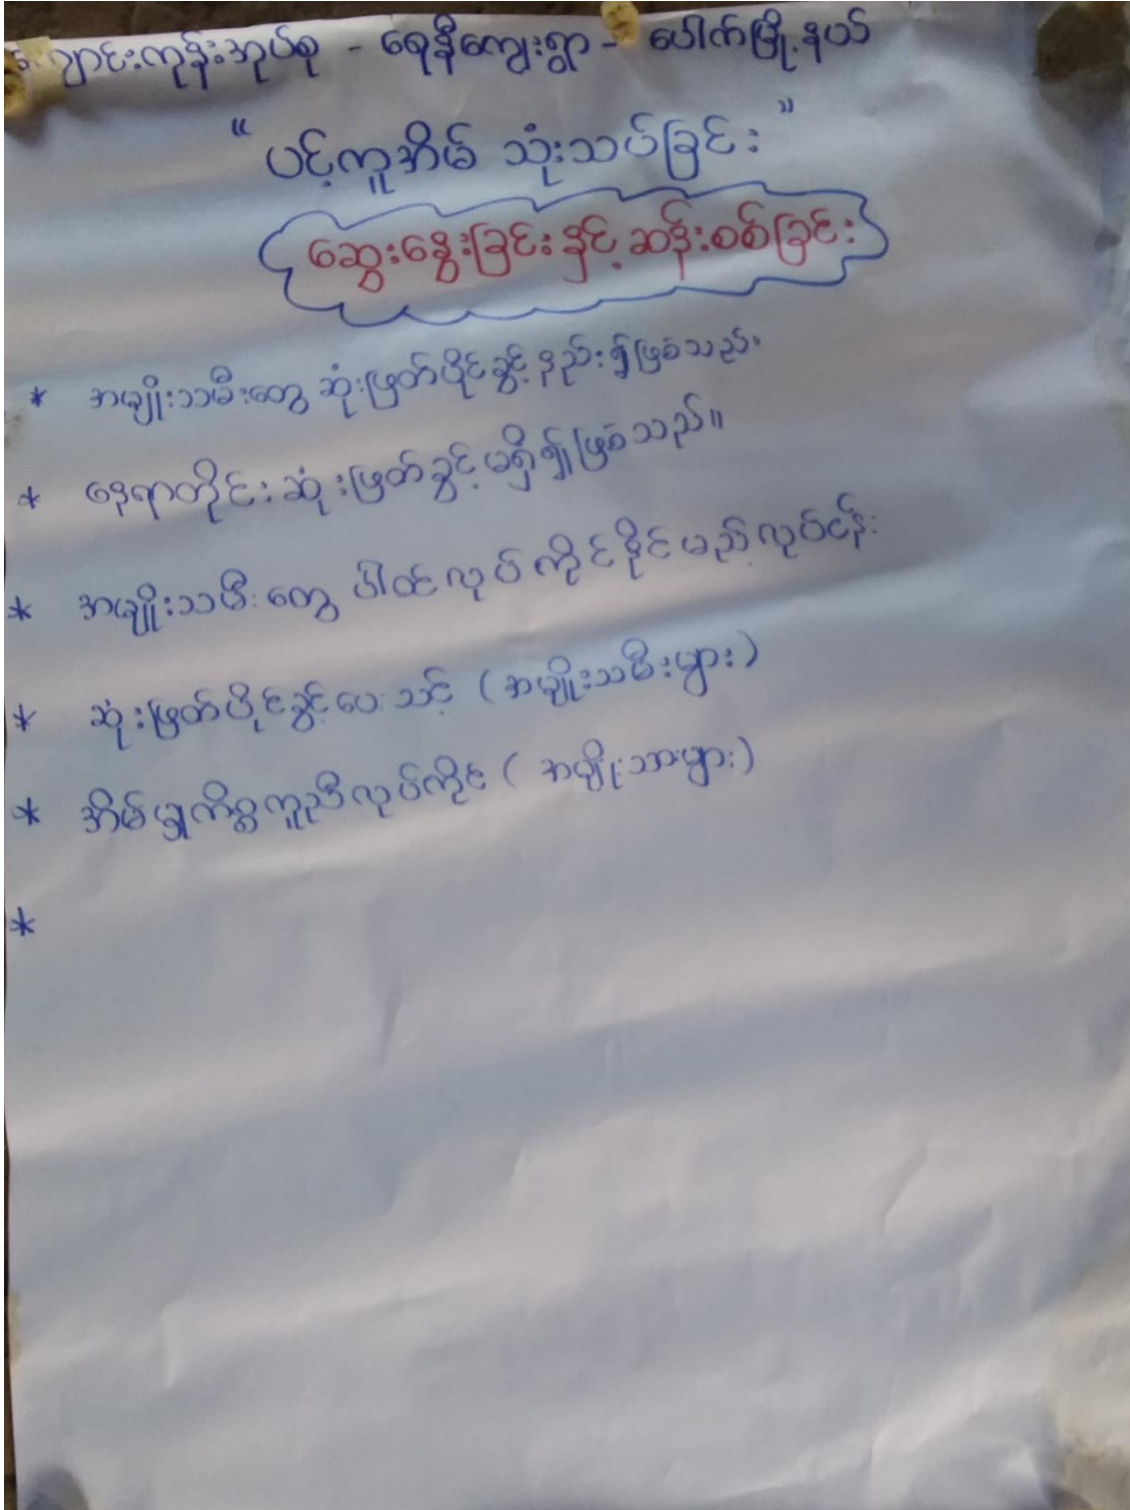 ကျောင်းကုန်းအုပ်စု - ရေနီကျေးရွာ - ပေါက်မြို့နယ်
"ပင့်ကူအိမ် သုံးသပ်ခြင်း"
ဆွေးနွေးခြင်းနှင့် ဆန်းစစ်ခြင်း
* အမျိုးသမီးတွေ ဆုံးဖြတ်ပိုင်ခွင့် နည်း၍ဖြစ်သည်။
* နေရာတိုင်း ဆုံးဖြတ်ခွင့် မရှိ၍ဖြစ်သည်။
* အမျိုးသမီးတွေ ပါဝင်လုပ်ကိုင်နိုင်မည့်လုပ်ငန်း
* ဆုံးဖြတ်ပိုင်ခွင့်ပေးသင့် (အမျိုးသမီးများ)
* အိမ်မှုကိစ္စကူညီလုပ်ကိုင် (အမျိုးသားများ)
*